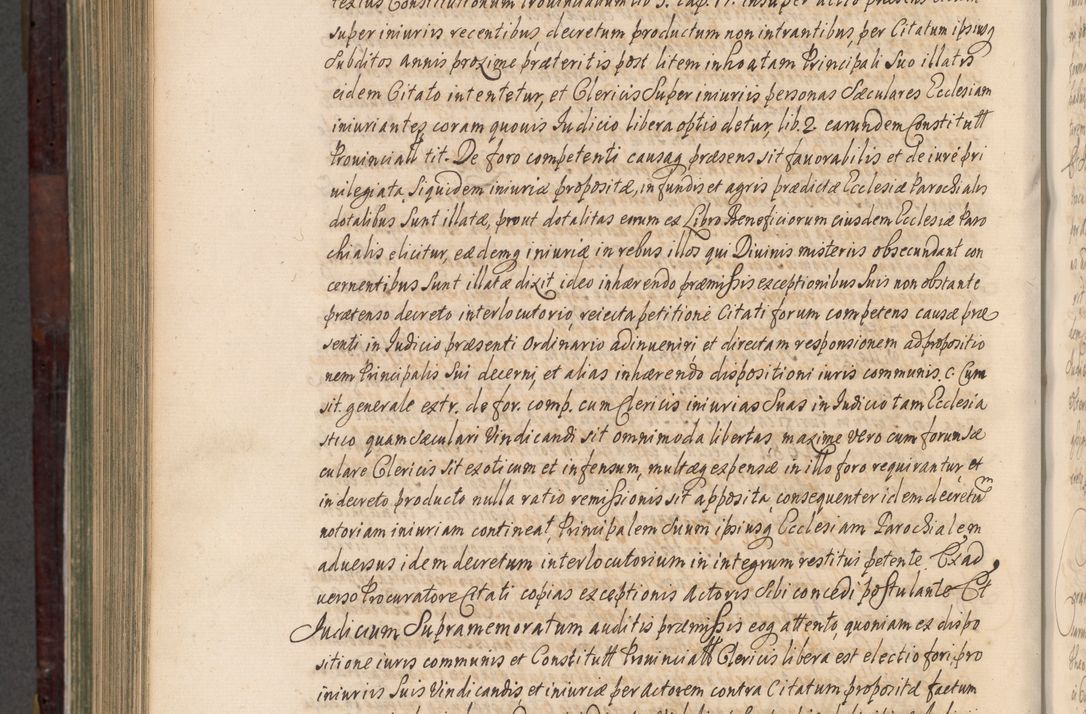 super iniuriis recentibus, decretum productum non intrantibus, per Citatum ipsiusq
Subditos annis proxime præteritis post litem inhoatam Principali Suo illatis
eidem Citato intentetur, et Clericis Super iniuriis personas Sæculares Ecclesiam
iniuriantes coram quouis Iudicio libera optio detur, lib. 2 earundem Constitutt
Prouinciall tit. De foro competenti causaq præsens sit fauorabilis et de iure pri
uilegiata, siquidem iniuriæ propositæ, in fundis et agris prædictæ Ecclesiæ Parochialis
dotalibus sunt illatæ, prout dotalitas earum ex Libro Beneficiorum eiusdem Ecclesiæ Paro
chialis elicitur, eædemq iniuriæ in rebus illos qui Diuinis misteriis obsecundant con
cernentibus sunt illatæ dixit ideo inhærendo præmissis exceptionibus Suis non obstante
prætenso decreto interlocutorio, reiecta petitione Citati forum competens causæ præ
senti in Iudicio præsenti Ordinario adinueniri et directam responsionem ad propositio
nem Principalis Sui decerni, et alias inhærendo dispositioni iuris communis. c. Cum
sit generale extr. de for. comp. cum Clericis iniurias Suas in Iudicio tam Ecclesia
stico quam Sæculari Vindicandi sit omnimoda libertas, maxime vero cum forum Sæ
culare Clericis sit exoticum et infensum, multæq expensæ in illo foro requirantur, et
in decreto producto nulla ratio remissionis sit apposita, consequenter idem decretum
notoriam iniuriam contineat, Principalem Suum ipsiusq Ecclesiam Parochialem
aduersus idem decretum interlocutorium in integrum restitui petente. Ex ad
uerso Procuratore Citati copias exceptionis Actoris Sibi concedi postulante Et
Iudicium Supramemoratum auditis præmissis eoq attento, quoniam ex dispo
sitione iuris communis et Constitutt Prouinciall Clericis libera est electio fori, pro
iniuriis Suis Vindicandis, et iniuriæ per Actorem contra Citatum propositæ factum